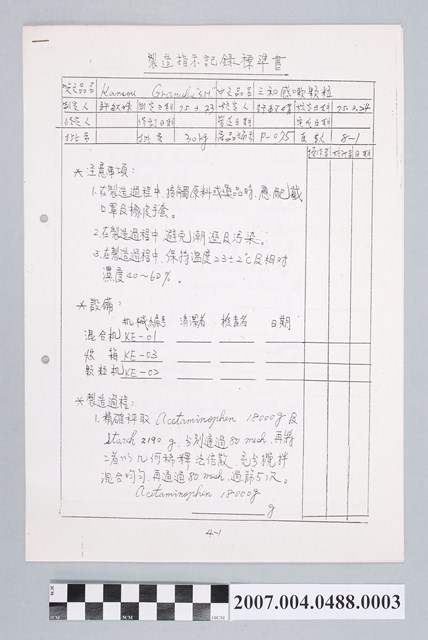 製造指示記錄標準書
英文品名 Kansou Granule "SH" 中文品名 三和感嗽顆粒
制定人 制定日期 75.2.23 核定人 核定日期 75.2.24
修定人 修訂日期 製造日期 完成日期
批號 批量 30kg 產品編號 P-075 頁數 8-1
操作者 核對者 日期
*注意事項:
1.在製造過程中,接觸原料或藥品時,應配戴
口罩及橡皮手套。
2.在製造過程中避免潮溼及污染。
3.在製造過程中,保持溫度23±2℃及相対
濕度40~60%。
*設備:
机械編号 清潔者 檢查者 日期
混合机 KE-01
收箱 KE-03
顆粒机 KE-02
*製造過程:
1.精確秤取 Acetaminophen 18000g及
Starch 2190g,分別通過80 mesh,再將
二者以几何稀釋法倍散,充分攪拌
混合均勻,再通過80 mesh,過篩5次。
Acetaminophen 18000g
g
4-1
CM
2007.004.0488.0003